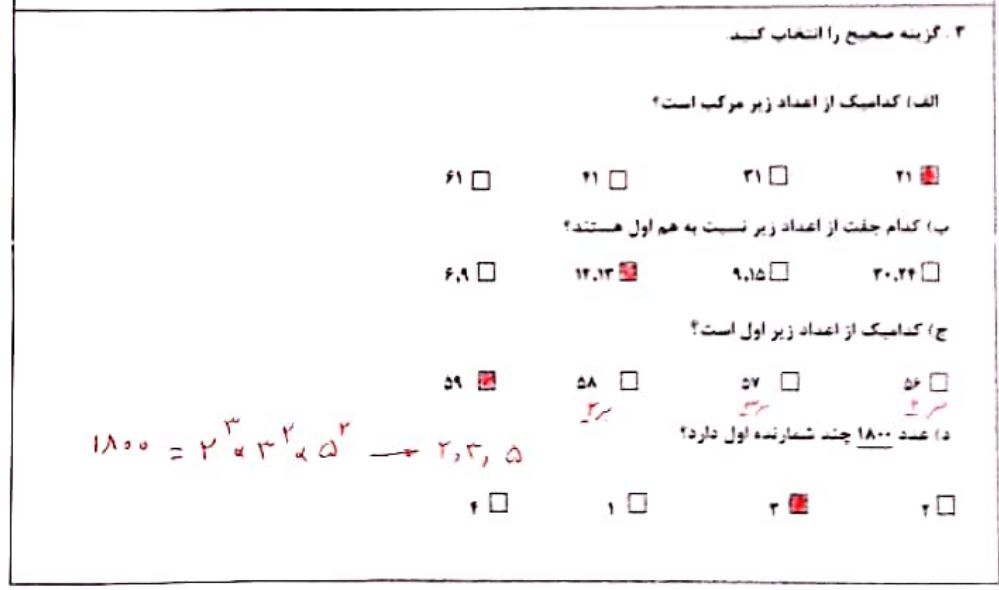 ۳ . گزینه صحیح را انتخاب کنید.
الف) کدامیک از اعداد زیر مرکب است؟
۲۱ ۳۱ ۴۱ ۶۱
ب) کدام جفت از اعداد زیر نسبت به هم اول هستند؟
۳۰,۲۴ ۹,۱۵ ۱۲,۱۳ ۶,۹
ج) کدامیک از اعداد زیر اول است؟
۵۶ ۵۷ ۵۸ ۵۹
بر ۲ بر ۳ بر ۲
د) عدد ۱۸۰۰ چند شمارنده اول دارد؟
۱۸۰۰ = ۲^۳ × ۳^۲ × ۵^۲ → ۲, ۳, ۵
۲ ۳ ۱ ۴